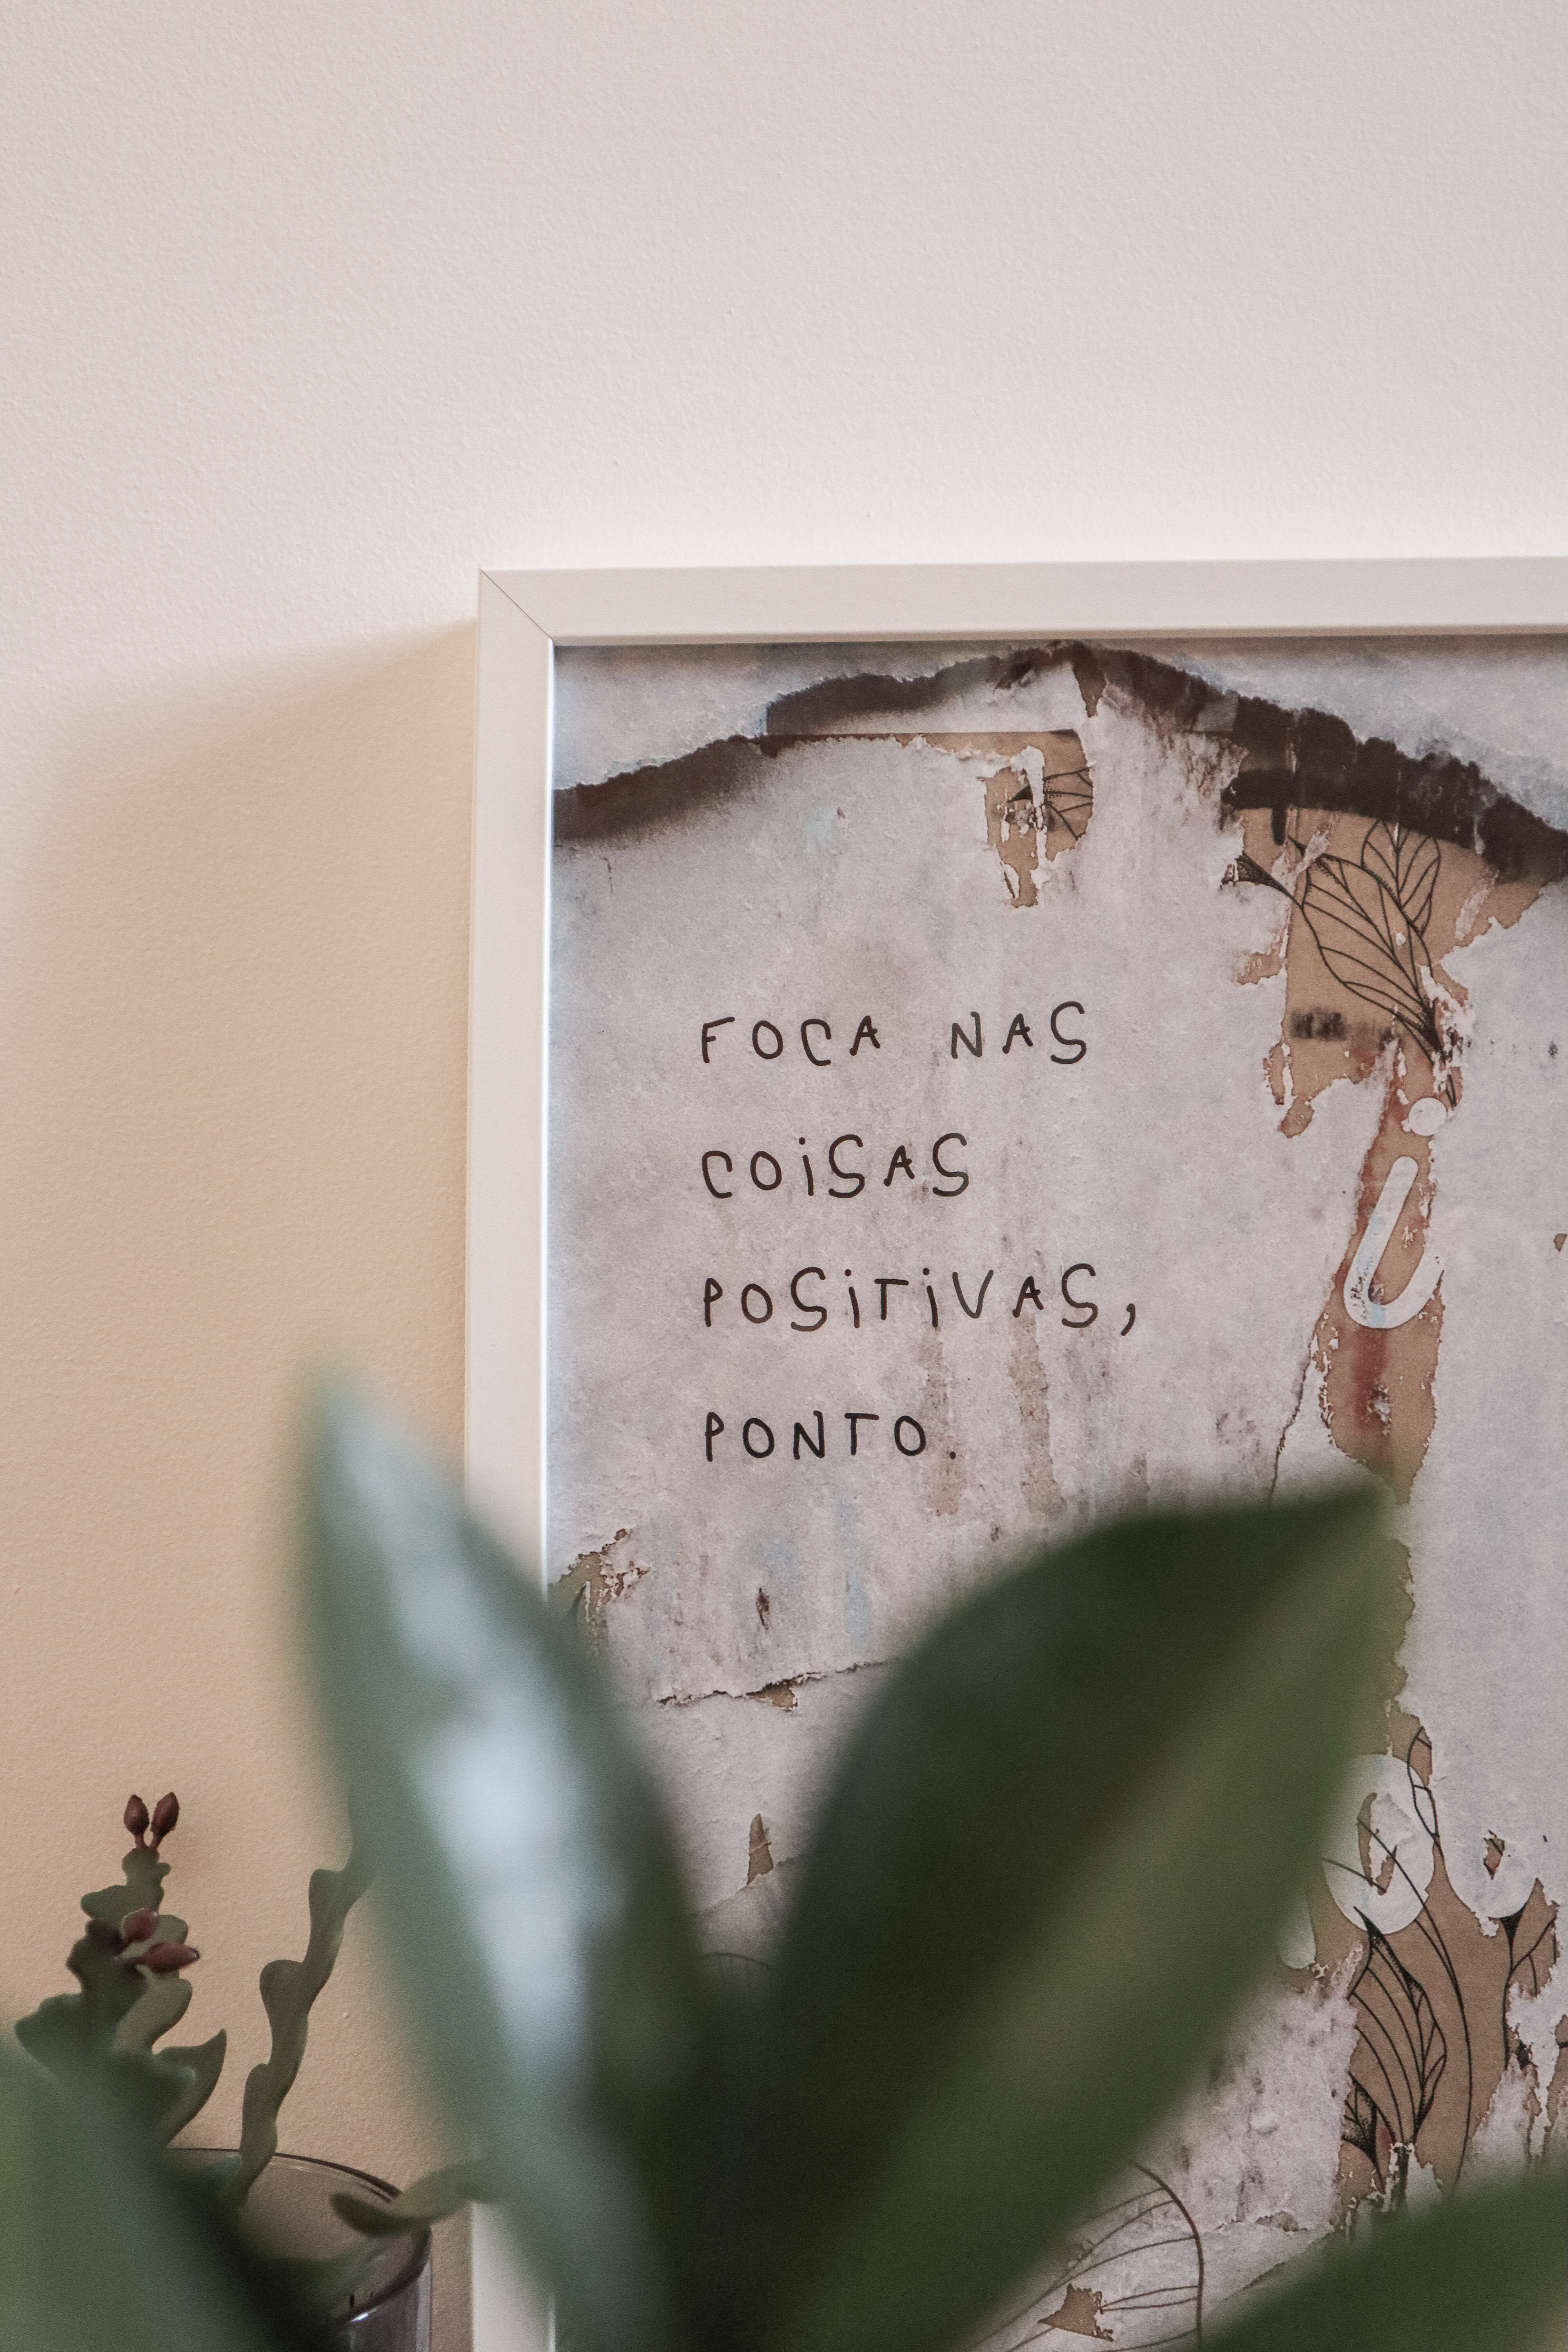 FOCA NAS
COiSAS
POSiTiVAS,
PONTO.